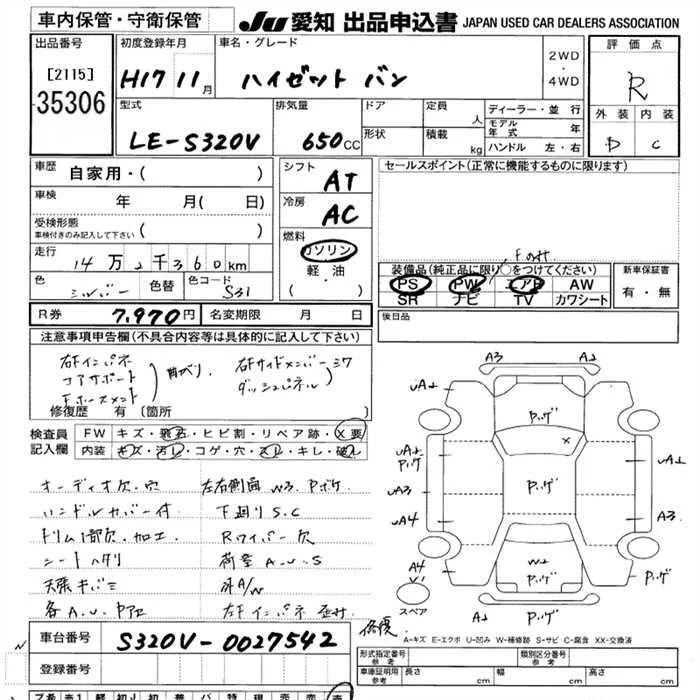 車内保管・守衛保管
JU 愛知 出品申込書 JAPAN USED CAR DEALERS ASSOCIATION
出品番号
[2115]
35306
初度登録年月
H17 11月
車名・グレード
ハイゼット バン
2WD
・
4WD
評価点
R
型式
LE-S320V
排気量
650cc
ドア
形状
定員
人
積載
kg
ディーラー・並 行
モデル年式 年
ハンドル 左・右
外装 内装
D C
車歴 自家用・( )
車検 年 月( 日)
受検形態
車検付きのみ記入して下さい ( )
走行 14万2千360km
色 シルバー 色替 色コード S31
シフト AT
冷房 AC
燃料
ガソリン
軽 油
( ・ )
セールスポイント(正常に機能するものに限ります)
Fのみ
装備品(純正品に限り○をつけてください)
PS PW エアB AW
SR ナビ TV カワシート
新車保証書
有・無
R券 7,970円 名変期限 月 日
後日品
注意事項申告欄(不具合内容等は具体的に記入して下さい)
右Fインパネ
コアサポート
曲がり、
右Fサイドメンバー
ダッシュパネル
修復歴 有 〔箇所 〕
検査員
記入欄
FW キズ・飛石・ヒビ割・リペア跡・X要
内装 キズ・汚レ・コゲ・穴・スレ・キレ・破レ
オーディオ欠.穴
ハンドルカバー付
シートヘタリ
左右側面 W3.Pボケ
下廻りS.C
Rワイパー欠
荷室A.U.S
A3 A2
UA2
Pハゲ
UA2
Pハゲ
UA3
UA4
UA2
A3
Pハゲ
Pハゲ
W2
Pハゲ
A4
Pハゲ
スペア
A2
A-キズ E-エクボ U-凹み W-補修跡 S-サビ C-腐食 XX-交換済
車台番号 S320V-0027542
登録番号
形式指定番号
参考
類別区分番号
参考
車庫証明用
参考
長さ cm 幅 cm 高さ cm